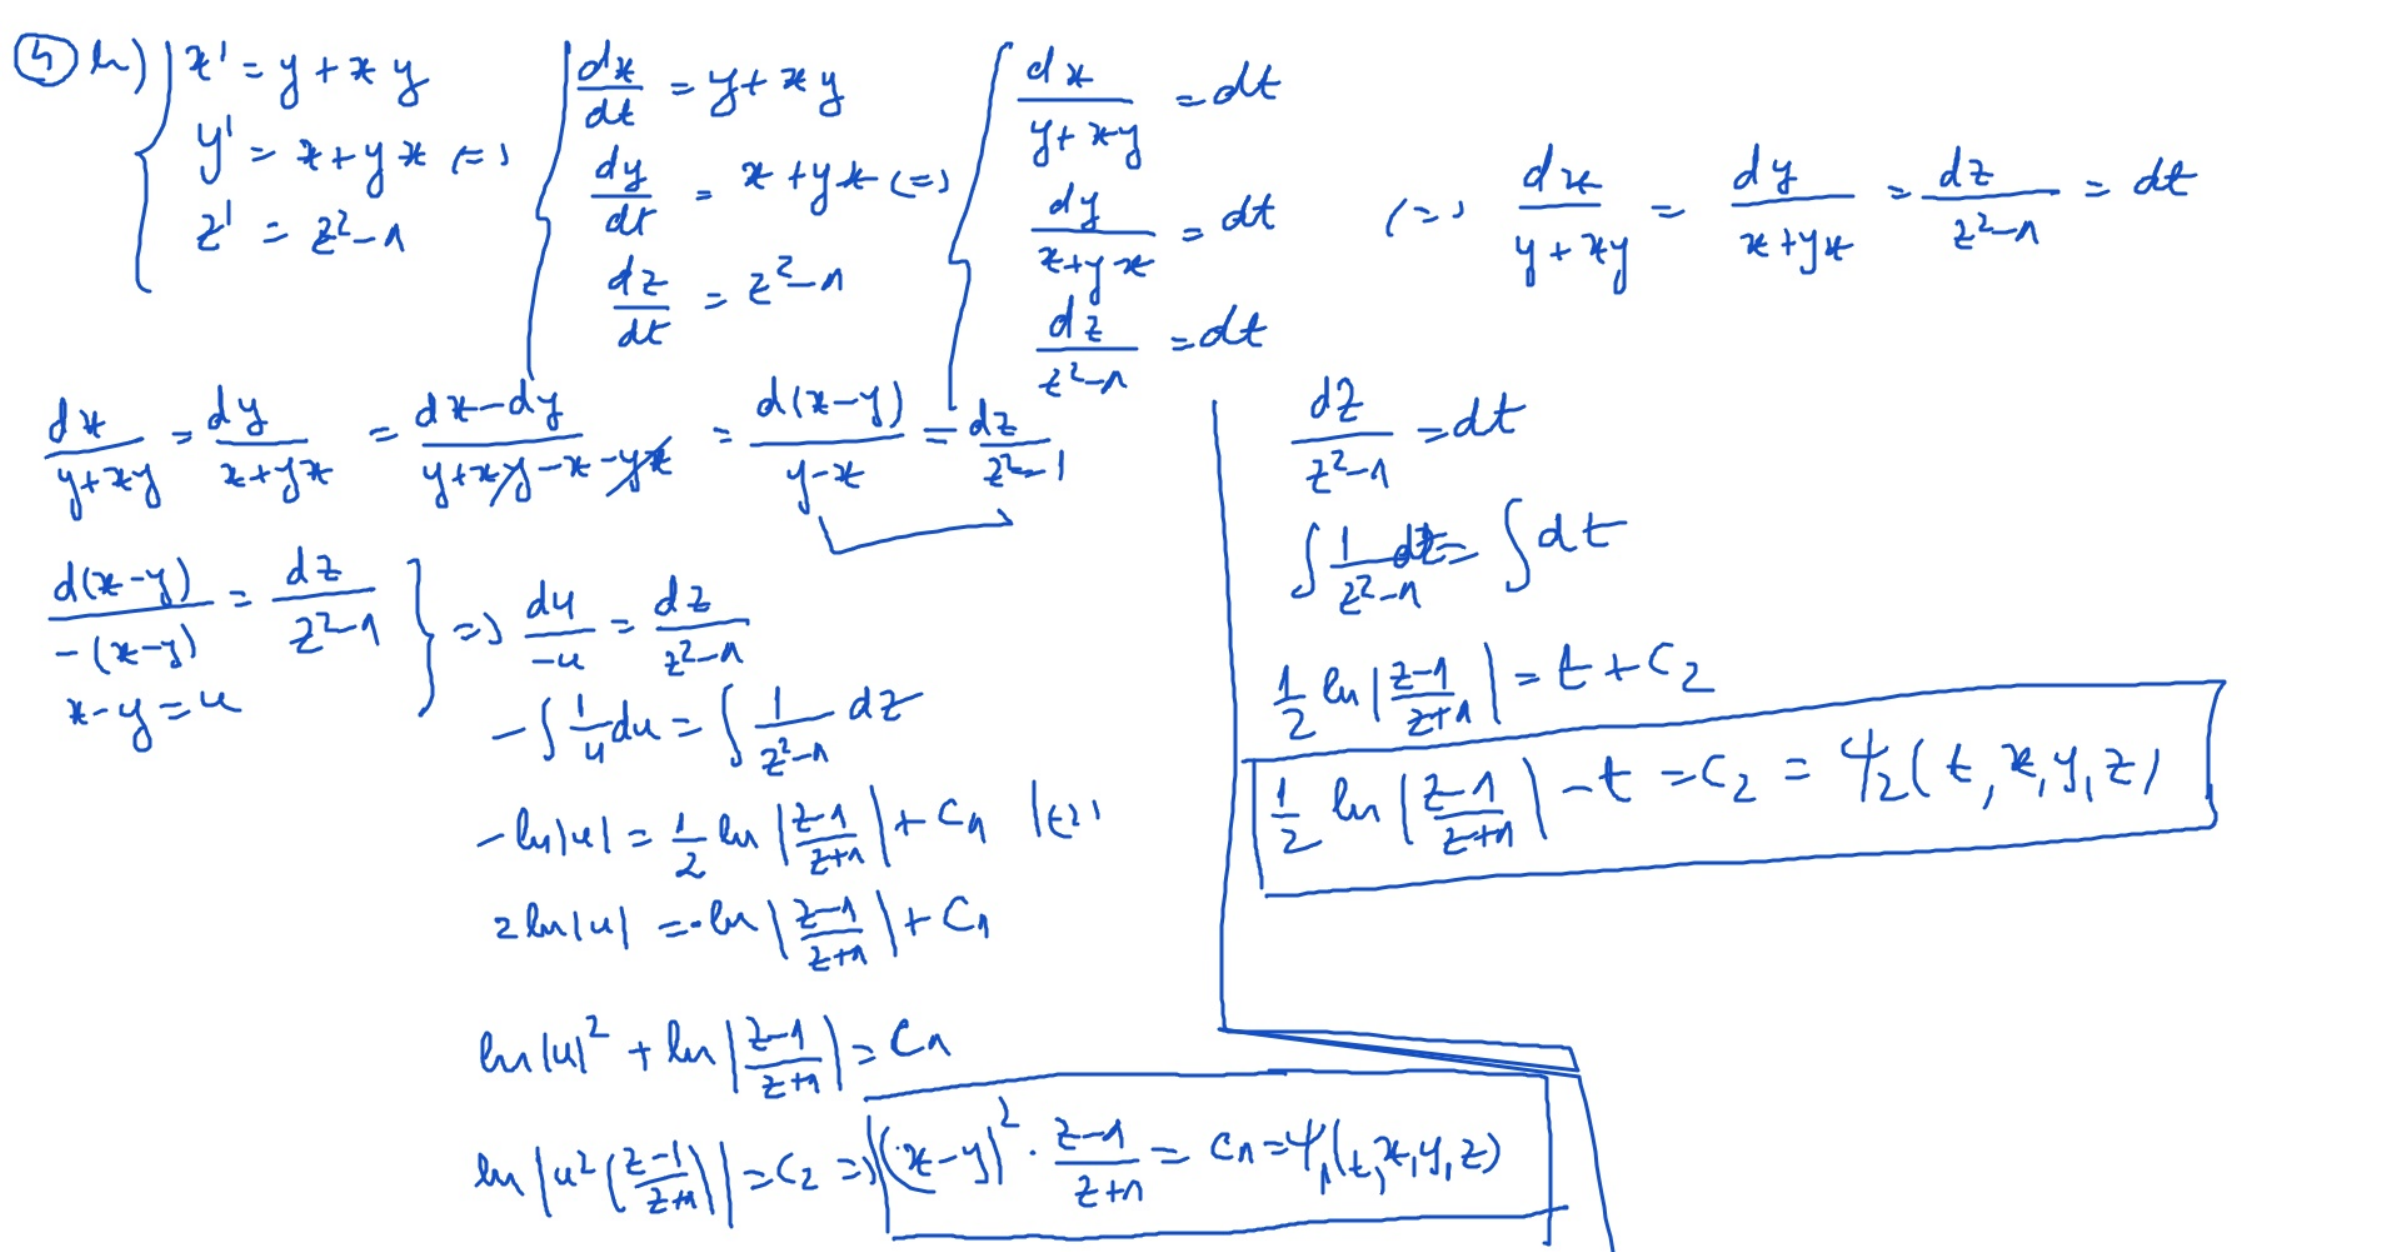 ④ h) { x' = y + xy
y' = x + yx (=)
z' = z² - 1
{ dx/dt = y + xy
dy/dt = x + yx (=)
dz/dt = z² - 1
{ dx/(y + xy) = dt
dy/(x + yx) = dt
dz/(z² - 1) = dt
(=) dx/(y + xy) = dy/(x + yx) = dz/(z² - 1) = dt
dx/(y + xy) = dy/(x + yx) = (dx - dy)/(y + xy - x - yx) = d(x - y)/(y - x) = dz/(z² - 1)
d(x - y)/(-(x - y)) = dz/(z² - 1)
x - y = u
} => du/(-u) = dz/(z² - 1)
- ∫ 1/u du = ∫ 1/(z² - 1) dz
- ln|u| = 1/2 ln |(z-1)/(z+1)| + C₁ |(2)
2 ln|u| = - ln |(z-1)/(z+1)| + C₁
ln|u|² + ln |(z-1)/(z+1)| = C₁
ln |u² ((z-1)/(z+1))| = C₂ => (x - y)² · (z-1)/(z+1) = C₁ = Ψ₁(t, x, y, z)
dz/(z² - 1) = dt
∫ 1/(z² - 1) dz = ∫ dt
1/2 ln |(z-1)/(z+1)| = t + C₂
1/2 ln |(z-1)/(z+1)| - t = C₂ = Ψ₂(t, x, y, z)